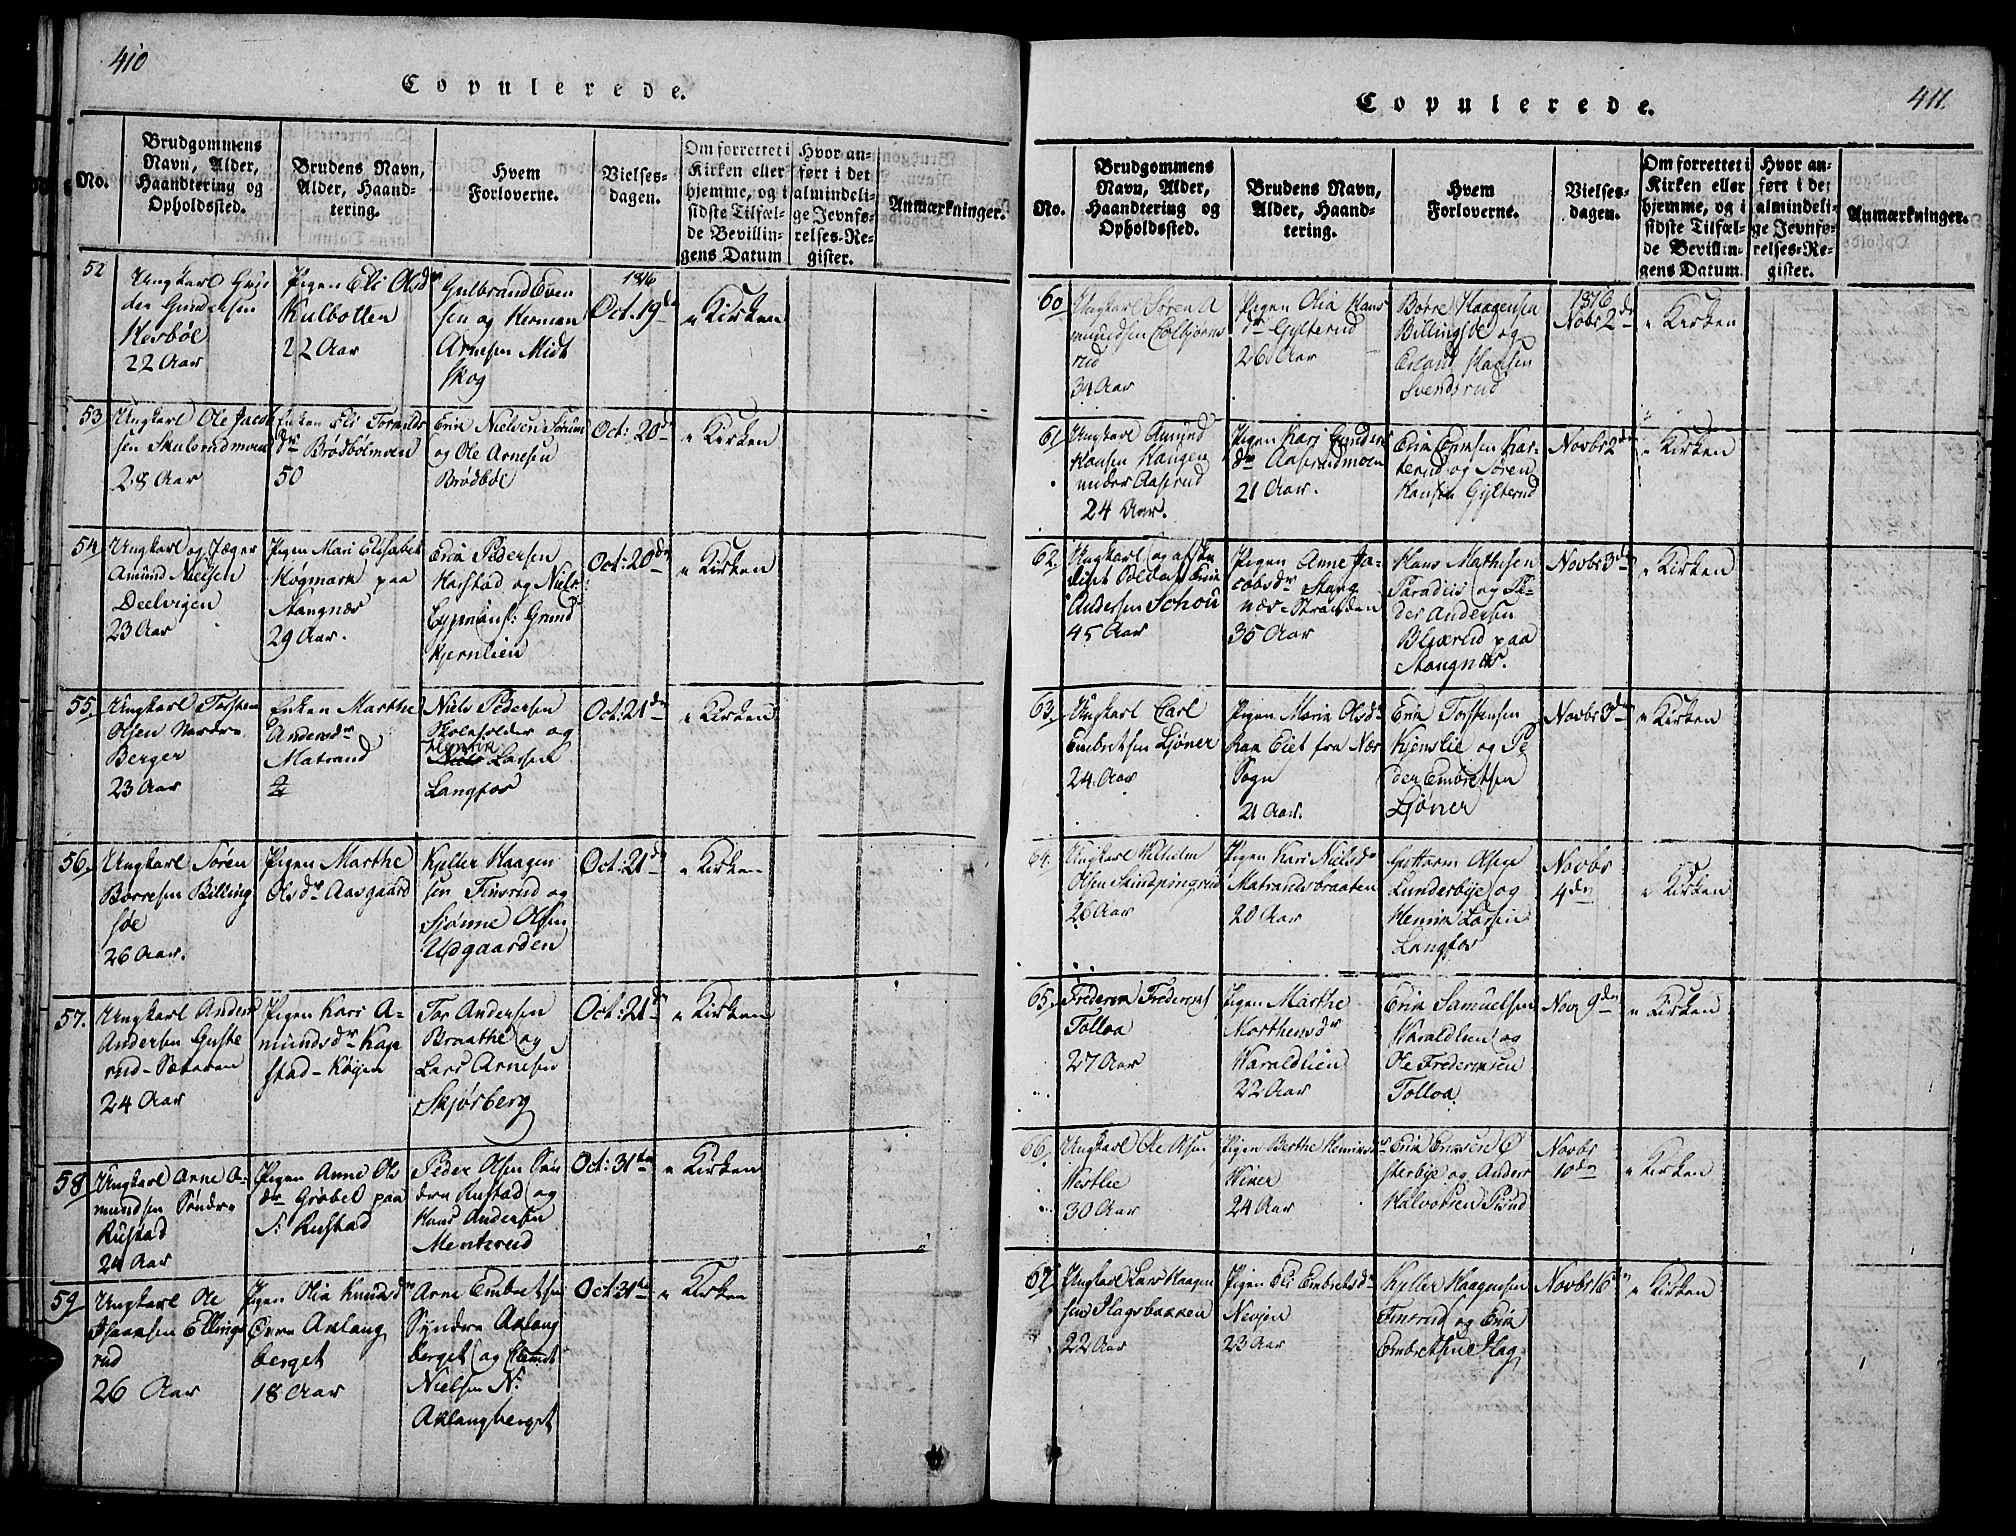 410
Copulerede.
No.
Brudgommens Navn, Alder, Haandtering og Opholdssted.
Brudens Navn, Alder, Haandtering.
Hvem Forloverne.
Vielsesdagen.
Om forrettet i Kirken eller hjemme, og i sidste Tilfælde Bevillingens Datum
Hvor anført i det almindelige Jevnførelses-Register.
Anmærkninger.
52
Ungkarl
den Gundersen
Hesbøl
22 Aar
Pigen Eli Olsdr
Kulbotten
22 Aar
Gulbrand Even
sen og Herman
Arnesen Midt
skog
1816
Oct: 19de
i Kirken
53
Ungkarl Ole Jacob
sen Skulerudmoen
28 Aar
Enken Eli
dr Brødbølmoen
50
Erik Nielsen
og Ole Arnesen
Brødbøl
Oct: 20de
i Kirken
54
Ungkarl og Jæger
Amund Nielsen
Deelvigen
23 Aar
Pigen Mari Elisabet
Høgmark paa
Stangnæs
29 Aar.
Erik Pedersen
Harstad og Niels
Grund
kjernlien
Oct: 20de
i Kirken
55.
Ungkarl Torsten
Olsen Nordre
Berger
23 Aar
Enken Marthe
Andersdr
Matrand
Niels Pedersen
Skoleholder og
Henrik
Larsen
Langfos
Oct: 21de
i Kirken
56.
Ungkarl Søren
Børresen Billing
søe
26 Aar.
Pigen Marthe
Olsdr Aasgaard
Keller Haagen
sen Finsrud og
Sjønne Olsen
Udgaarden
Oct: 21de
i Kirken
57.
Ungkarl Anders
Andersen Guste
rud-Sæteren
24 Aar
Pigen Kari A-
mundsdr Kap
stad-Høgen
Tor Andersen
Braathe og
Lars Arnesen
Skjørberg
Oct: 21de
i Kirken
58
Ungkarl Arne A-
mundsen Søndre
Rustad
24 Aar
Pigen Anne Ols
dr Grøbel paa
S: Rustad
Peder Olsen Søn
dre Rustad og
Hans Andersen
Menterud
Oct: 31te
i Kirken
59
Ungkarl Ole
Isaksen Ellings
rud
26 Aar
Pigen Olia Knudsdr
Øvre Aklang
berget
18 Aar
Arne Embretsen
Syndre Aklang
berget og
Nielsen N:
Aklangberget
Oct: 31te
i Kirken
411.
Copulerede.
No.
Brudgommens Navn, Alder, Haandtering og Opholdssted.
Brudens Navn, Alder, Haandtering.
Hvem Forloverne.
Vielsesdagen.
Om forrettet i Kirken eller hjemme, og i sidste Tilfælde Bevillingens Datum.
Hvor anført i det almindelige Jevnførelses-Register.
Anmærkninger.
60
Ungkarl Søren A
mundsen Colbjørns
rud
34 Aar
Pigen Olia Hans
dr Gylterud
26 Aar
Børre Haagensen
Billingsøe og
Erland Hansen
Svendsrud
1816
Nobr 2de
i Kirken
61
Ungkarl Amund
Hansen Haugen
under Aaserud
24 Aar.
Pigen Kari Gunders
dr Aaserudmoen
21 Aar.
Erik Eriksen Har-
terud og Søren
Hansen Gylterud
Novbr 2de
i Kirken
62.
Ungkarl og afske
diget Soldat Erik
Andersen Schou
45 Aar
Pigen Anne Ja-
cobsdr Stang
næs-Stranden
35 Aar
Hans Mathisen
Paradiis og Pe-
der Andersen
Blixrud paa
Stangnæs.
Novbr 3de
i Kirken
63.
Ungkarl Carl
Embretsen Sjøner
24 Aar
Pigen Maria Olsdr
Kan Eiet fra Næs
Sogn
21 Aar.
Erik Torstensen
Kjenslie og Pe
der Embretsen
Sjøner
Novbr 3de
i Kirken
64.
Ungkarl Wilhelm
Olsen Skindpingrud
26 Aar
Pigen Kari Nielsdr
Matrandsbraaten
20 Aar
Guttorm Olsen
Lunderbye og
Henrik Larsen
Langfos
Novbr
4de
i Kirken
65.
Frederik Frederiks
Tolloa
27 Aar
Pigen Marthe
Morthensdr
Haraldlien
22 Aar
Erik Samuelsen
Haraldlien og
Ole Frederiksen
Tolloa
Nov. 9de
i Kirken
66.
Ungkarl Ole Olsen
Westlie
30 Aar
Pigen Berthe Henriksdr
Wiker
24 Aar
Erik Eriksen Ø
sterbye og Anders
Halvorsen
Novbr
10de
i Kirken
67
Ungkarl Lars Haagen
sen Flagsbakken
22 Aar
Pigen Eli Embretsdr
Nersjøn
23 Aar
Keller Haagensen
Finsrud og Erik
Embretsen Flag
Novbr 16de
i Kirken